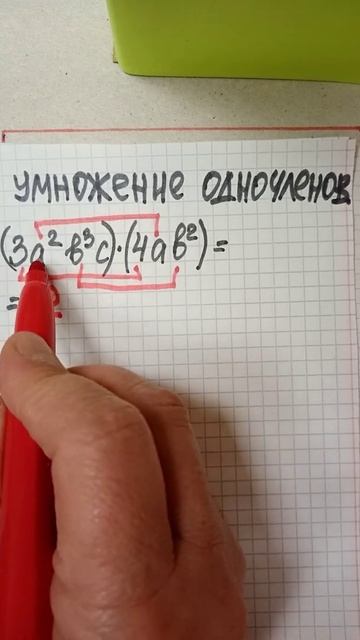 умножение одночленов
(3a²в³c)·(4aв²)=
=